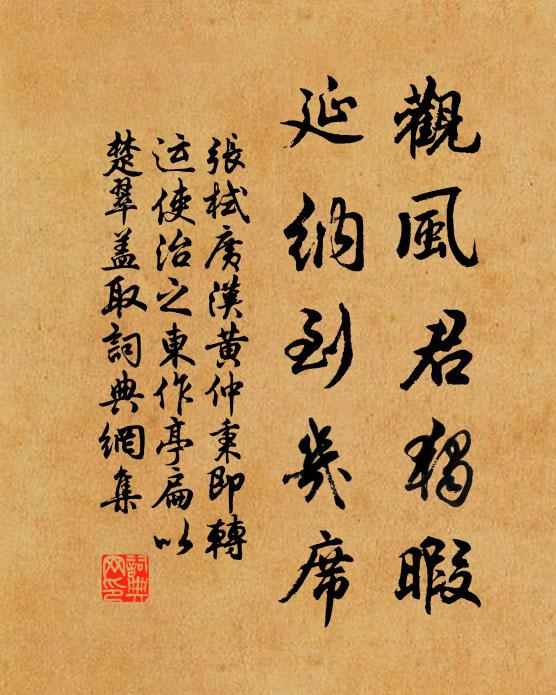 觀風君獨暇
延納到几席
張栻廣漢黄仲秉即轉
运使治之東作亭扁以
楚翠盖取詞典網集
詞典
网印